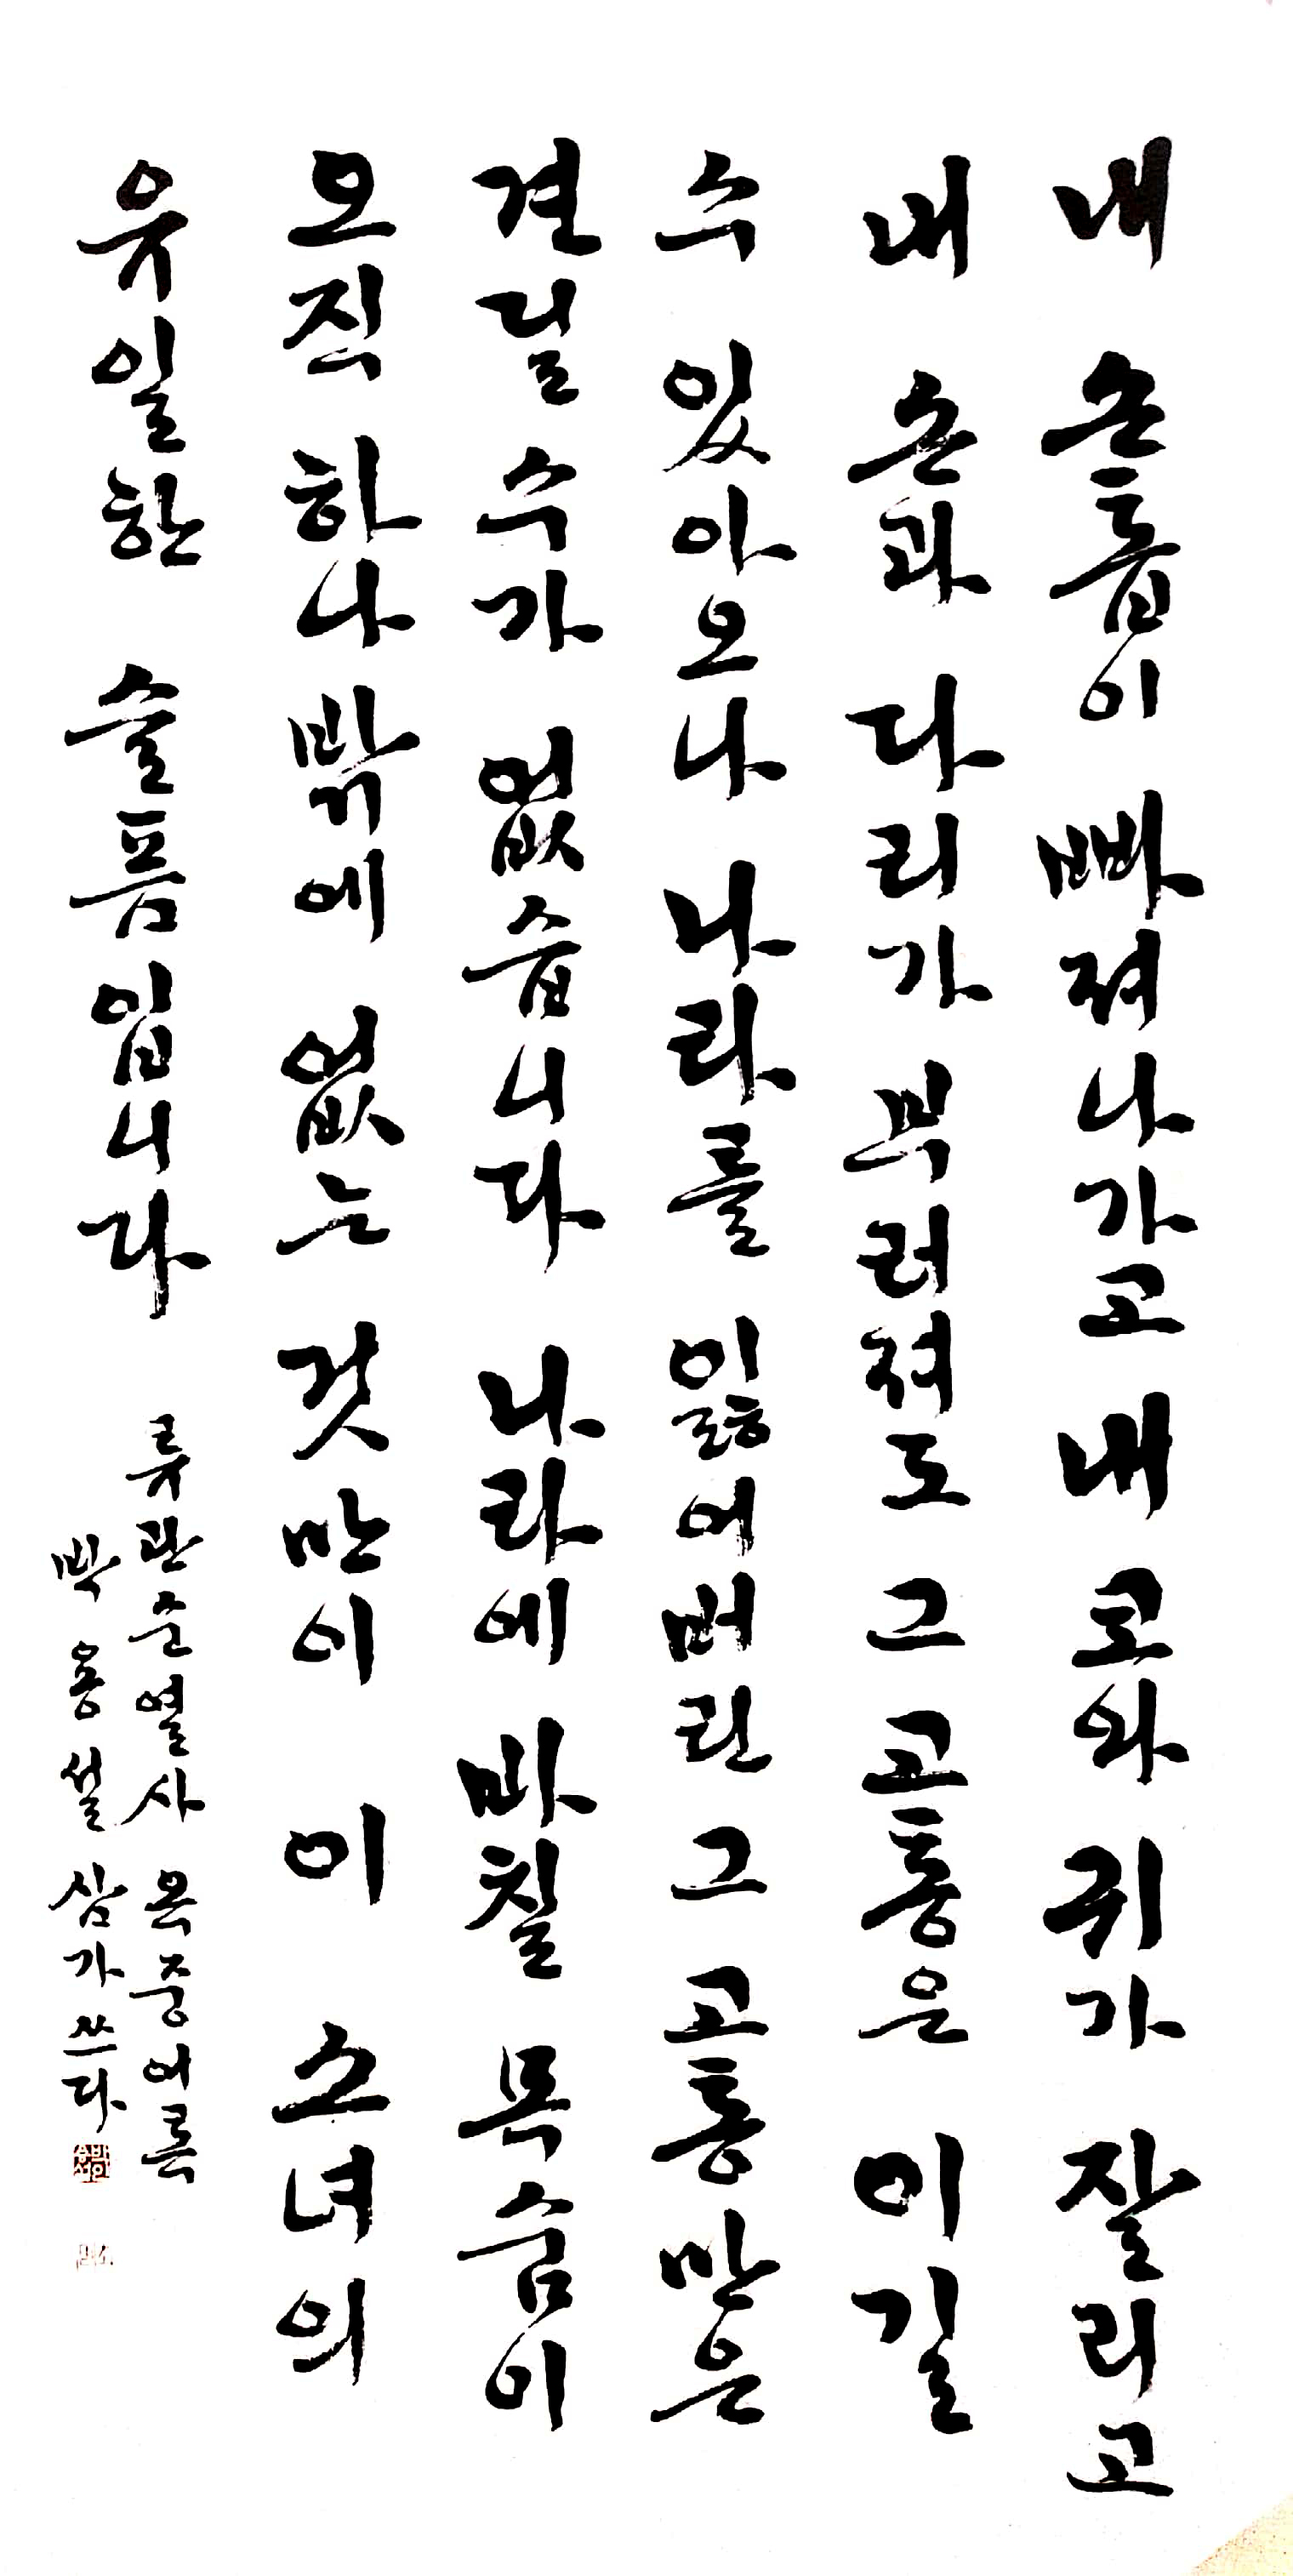 내 손톱이 빠져나가고 내 코와 귀가 잘리고
내 손과 다리가 부러져도 그 고통은 이길
수 있아오나 나라를 잃어버린 그 고통만은
견딜 수가 없습니다 나라에 바칠 목숨이
오직 하나밖에 없는 것만이 이 소녀의
유일한 슬픔입니다
류관순열사 옥중어록
박용설 삼가 쓰다